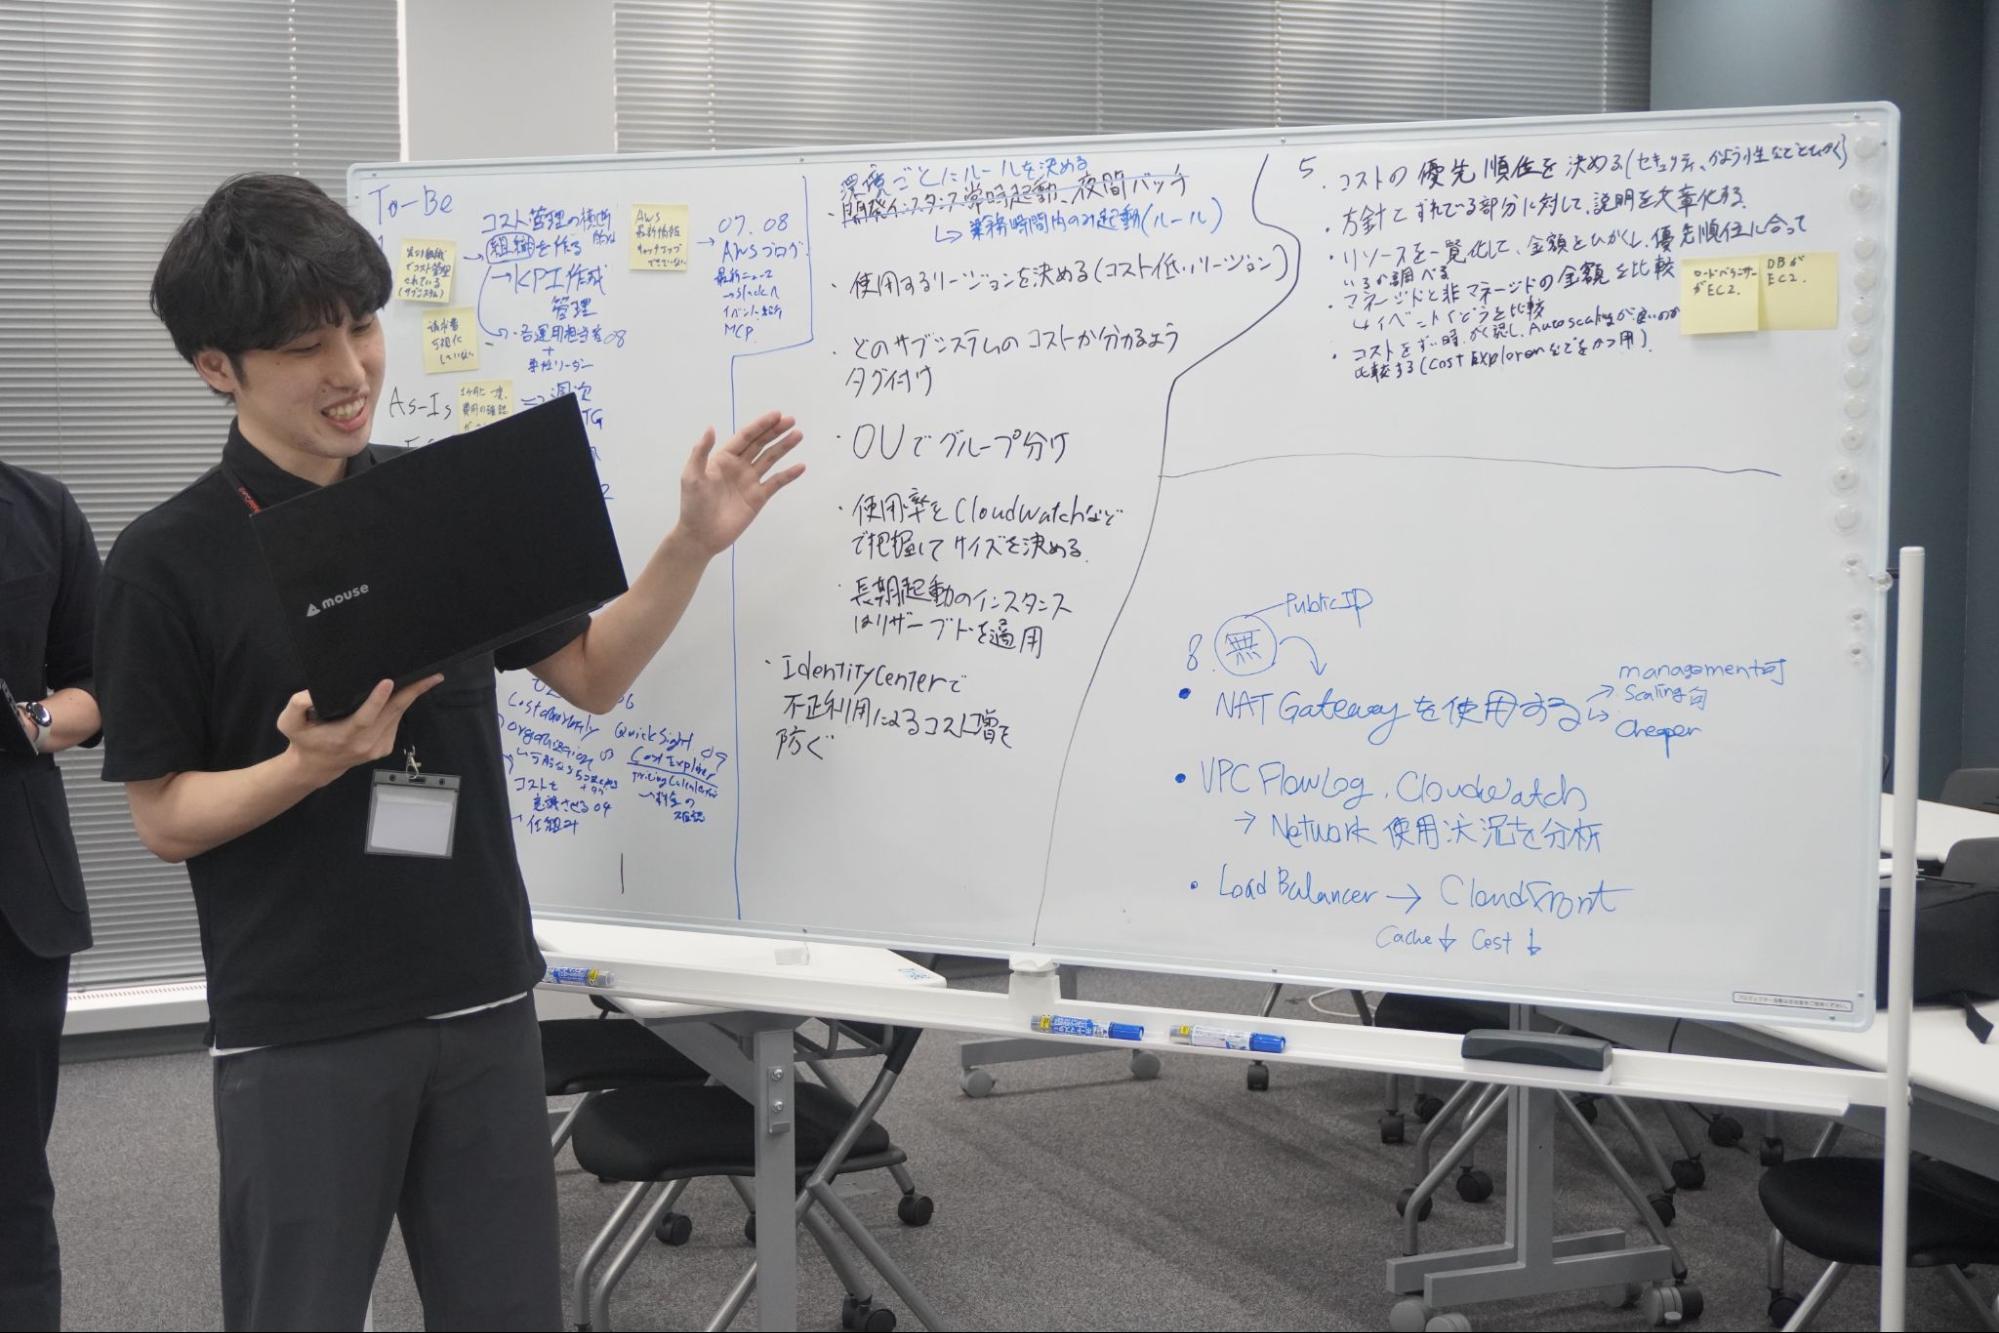 To-Be
コスト管理の横断的な
組織を作る
→KPI作成
管理
・各運用担当者08
+
弊社リーダー
可視化
していない
As-Is
1ヶ月に一度、
費用の確認
⇒週次
AWS
最新情報
キャッチアップ
できていない
→
07.08
AWSブログ
最新ニュース
→Slackへ
イベント紹介
MCP
mouse
QuickSight 09
Cost Explorer
Pricing Calculator
コストを
意識させる04
仕組み
環境ごとにルールを決める
・開発インスタンス常時起動、夜間バッチ
↳業務時間内のみ起動(ルール)
・使用するリージョンを決める(コスト低いリージョン)
・どのサブシステムのコストか分かるよう
タグ付け
・OUでグループ分け
・使用率をCloudWatchなど
で把握してサイズを決める
・長期起動のインスタンス
はリザーブドを適用
・IdentityCenterで
不正利用によるコスト増を
防ぐ
5
・コストの優先順位を決める(セキュリティ、かよう性などとひかく)
・方針とずれている部分に対して、説明を文章化する。
・リソースを一覧化して、金額とひかくし、優先順位に合って
いるか調べる
・マネージドと非マネージドの金額を比較
・コストをずい時かく認し、Autoscalingが良いのか
比較する(Cost Explorerなどをかつ用)
ロードバランサー
がEC2.
DBが
EC2.
Public IP
8. 無
・NAT Gatewayを使用する
management可
Scaling可
Cheaper
・VPC FlowLog, Cloudwatch
→ Network使用状況を分析
・Load Balancer → CloudFront
Cache↓ Cost↓